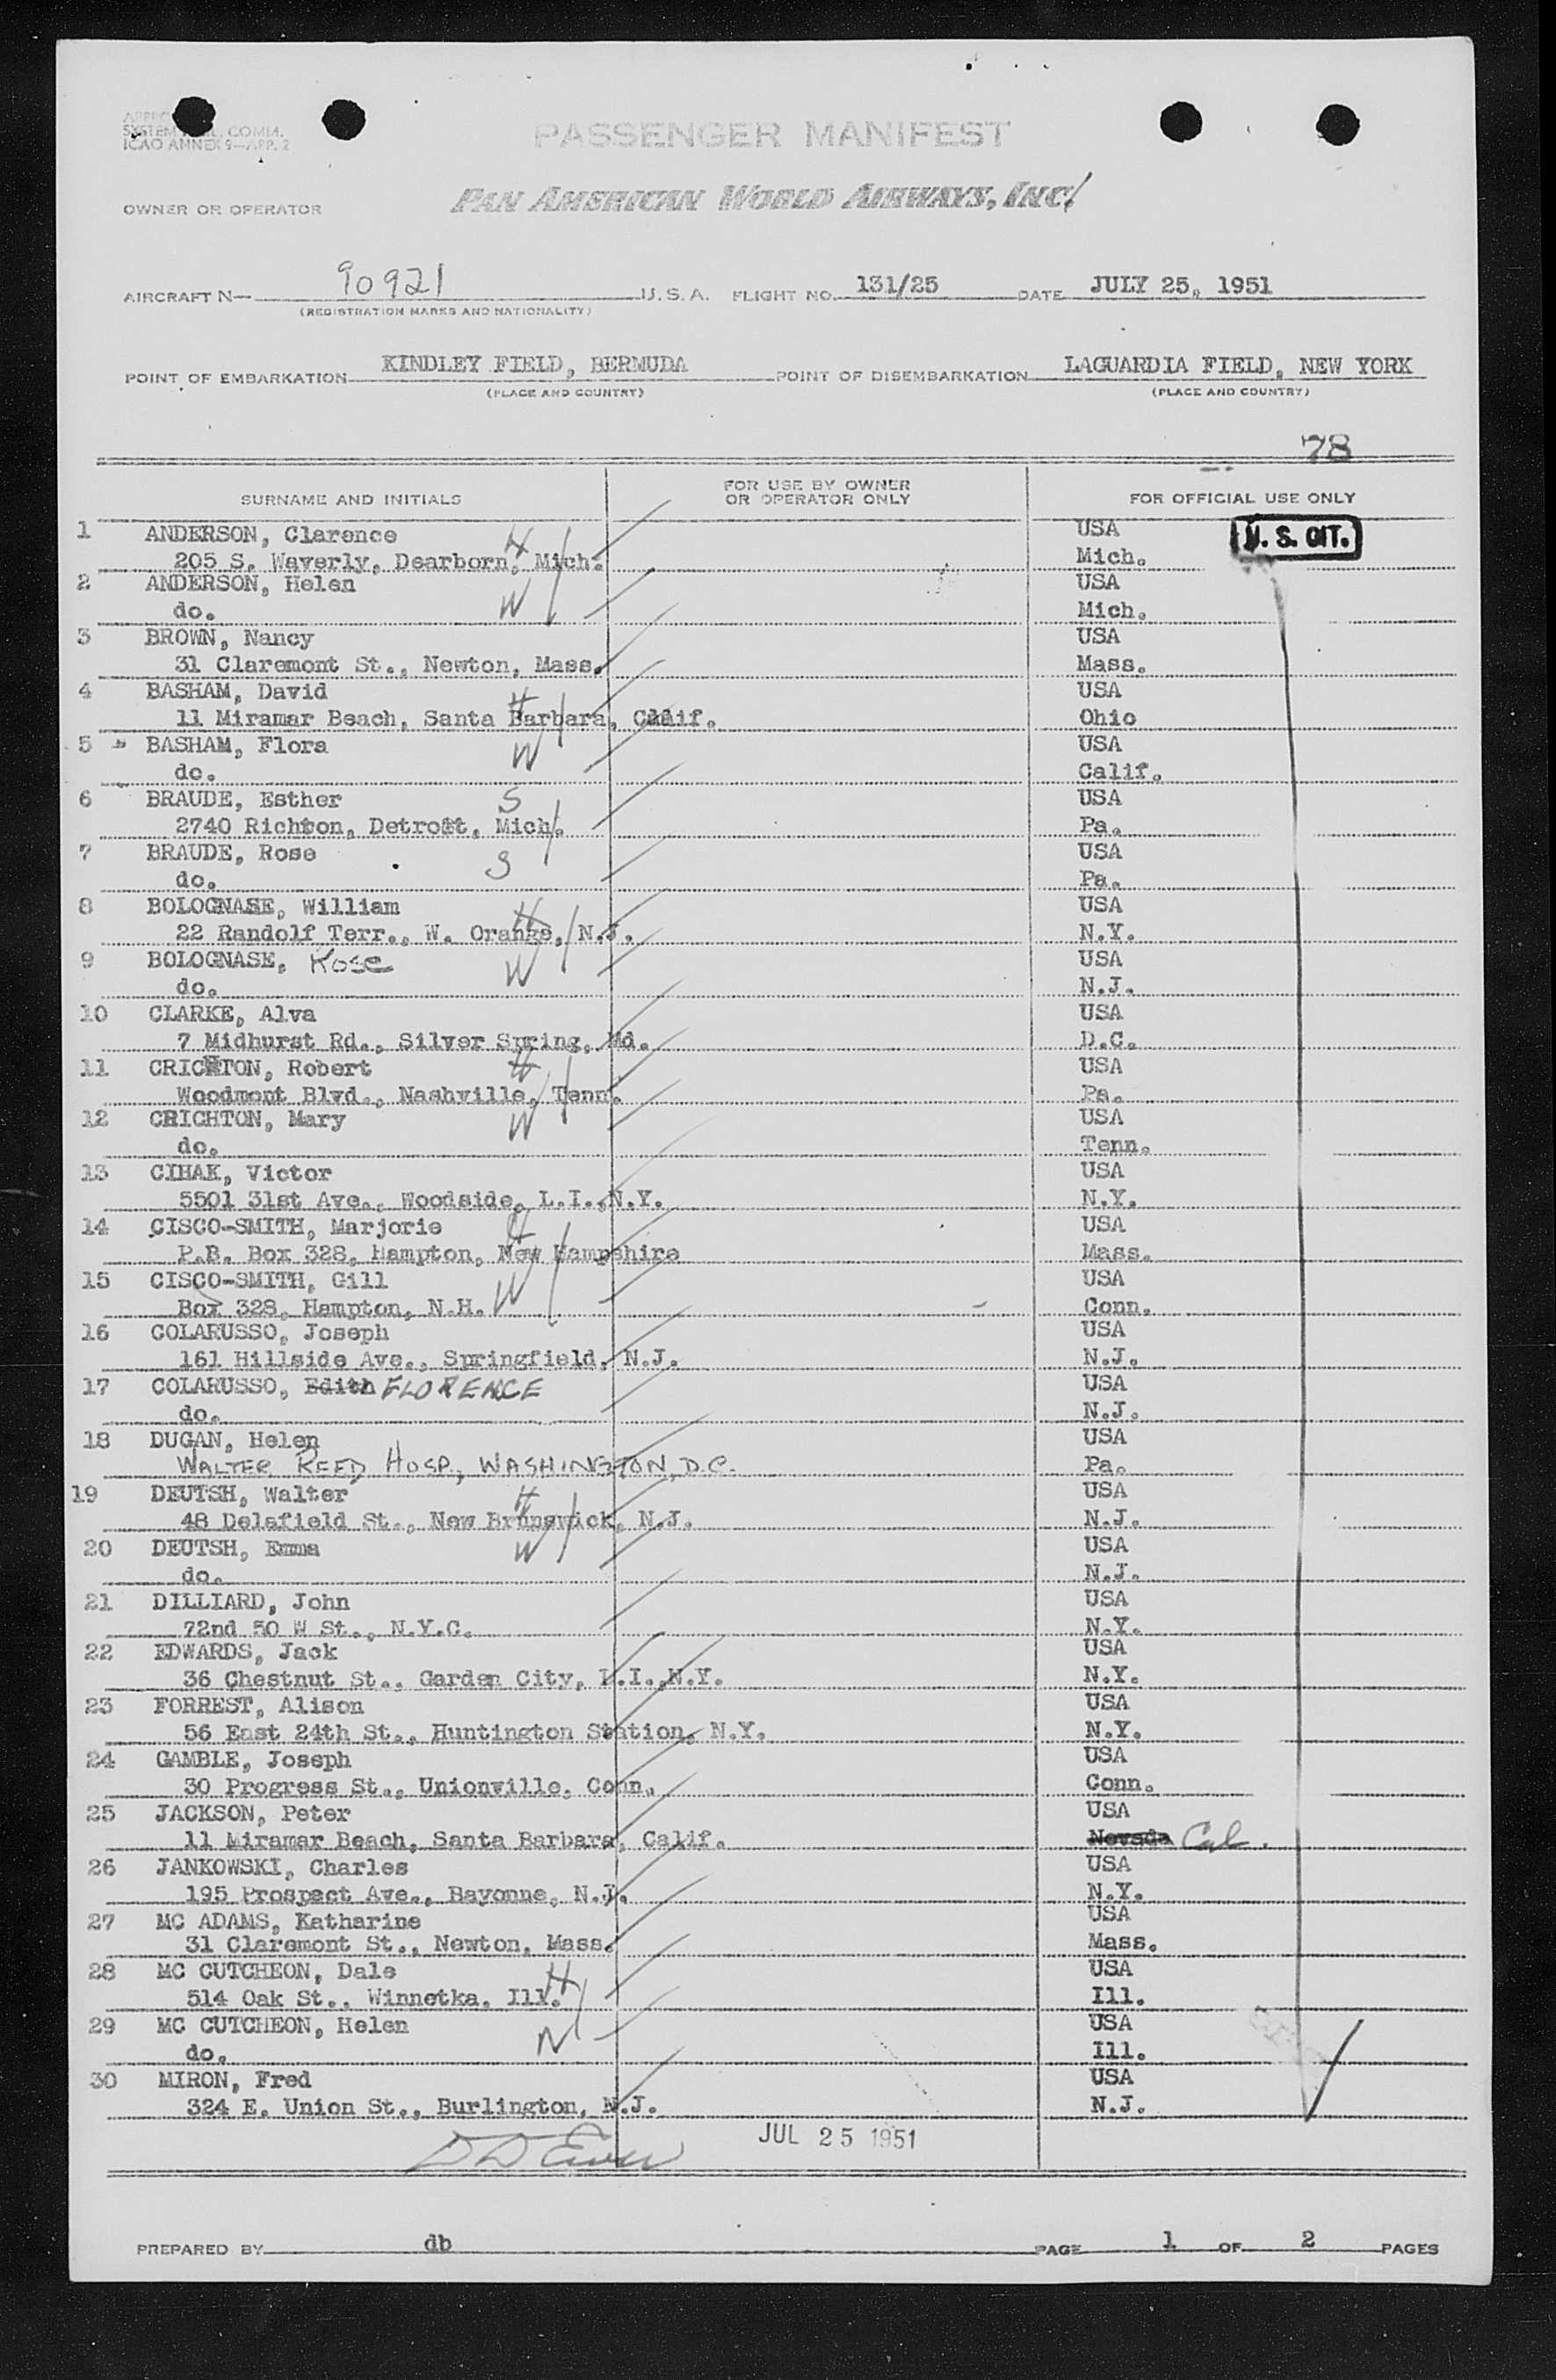 SYSTEM COMM.
ICAO ANNEX 9—APP. 2
PASSENGER MANIFEST
OWNER OR OPERATOR PAN AMERICAN WORLD AIRWAYS, INC.
AIRCRAFT N— 90921 U. S. A. FLIGHT NO. 131/25 DATE JULY 25, 1951
(REGISTRATION MARKS AND NATIONALITY)
POINT OF EMBARKATION KINDLEY FIELD, BERMUDA POINT OF DISEMBARKATION LAGUARDIA FIELD, NEW YORK
(PLACE AND COUNTRY) (PLACE AND COUNTRY)
78
SURNAME AND INITIALS FOR USE BY OWNER OR OPERATOR ONLY FOR OFFICIAL USE ONLY
1 ANDERSON, Clarence USA U. S. CIT.
205 S. Waverly, Dearborn, Mich. H Mich.
2 ANDERSON, Helen USA
do. W Mich.
3 BROWN, Nancy USA
31 Claremont St., Newton, Mass. Mass.
4 BASHAM, David H USA
11 Miramar Beach, Santa Barbara, Calif. Ohio
5 BASHAM, Flora W USA
do. Calif.
6 BRAUDE, Esther S USA
2740 Richton, Detroit, Mich. Pa.
7 BRAUDE, Rose S USA
do. Pa.
8 BOLOGNASE, William H USA
22 Randolf Terr., W. Orange, N.J. N.Y.
9 BOLOGNASE, Rose W USA
do. N.J.
10 CLARKE, Alva USA
7 Midhurst Rd., Silver Spring, Md. D.C.
11 CRICHTON, Robert H USA
Woodmont Blvd., Nashville, Tenn. Pa.
12 CRICHTON, Mary W USA
do. Tenn.
13 CIHAK, Victor USA
5501 31st Ave., Woodside, L.I.,N.Y. N.Y.
14 CISCO-SMITH, Marjorie H USA
P.B. Box 328, Hampton, New Hampshire Mass.
15 CISCO-SMITH, Gill W USA
Box 328, Hampton, N.H. Conn.
16 COLARUSSO, Joseph USA
161 Hillside Ave., Springfield, N.J. N.J.
17 COLARUSSO, Edith FLORENCE USA
do. N.J.
18 DUGAN, Helen USA
WALTER REED HOSP., WASHINGTON, D.C. Pa.
19 DEUTSH, Walter H USA
48 Delafield St., New Brunswick, N.J. N.J.
20 DEUTSH, Emma W USA
do. N.J.
21 DILLIARD, John USA
72nd 50 W St., N.Y.C. N.Y.
22 EDWARDS, Jack USA
36 Chestnut St., Garden City, L.I.,N.Y. N.Y.
23 FORREST, Alison USA
56 East 24th St., Huntington Station, N.Y. N.Y.
24 GAMBLE, Joseph USA
30 Progress St., Unionville, Conn. Conn.
25 JACKSON, Peter USA
11 Miramar Beach, Santa Barbara, Calif. Nevada Cal.
26 JANKOWSKI, Charles USA
195 Prospect Ave., Bayonne, N.J. N.Y.
27 MC ADAMS, Katharine USA
31 Claremont St., Newton, Mass. Mass.
28 MC CUTCHEON, Dale H USA
514 Oak St., Winnetka, Ill. Ill.
29 MC CUTCHEON, Helen W USA
do. Ill.
30 MIRON, Fred USA
324 E. Union St., Burlington, N.J. N.J.
JUL 25 1951
PREPARED BY db PAGE 1 OF 2 PAGES